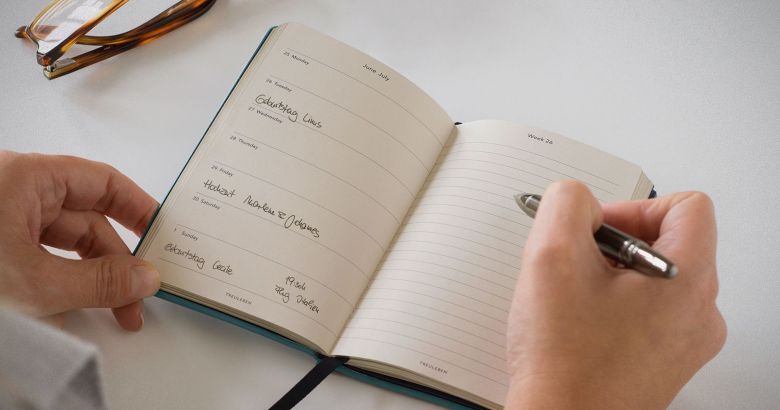 June July
25 Monday
26 Tuesday
Geburtstag Linus
27 Wednesday
28 Thursday
29 Friday
Hochzeit Marlen & Johannes
30 Saturday
1 Sunday
Geburtstag Cecile
19:50h
Flug Italien
TREULEBEN
Week 26
TREULEBEN